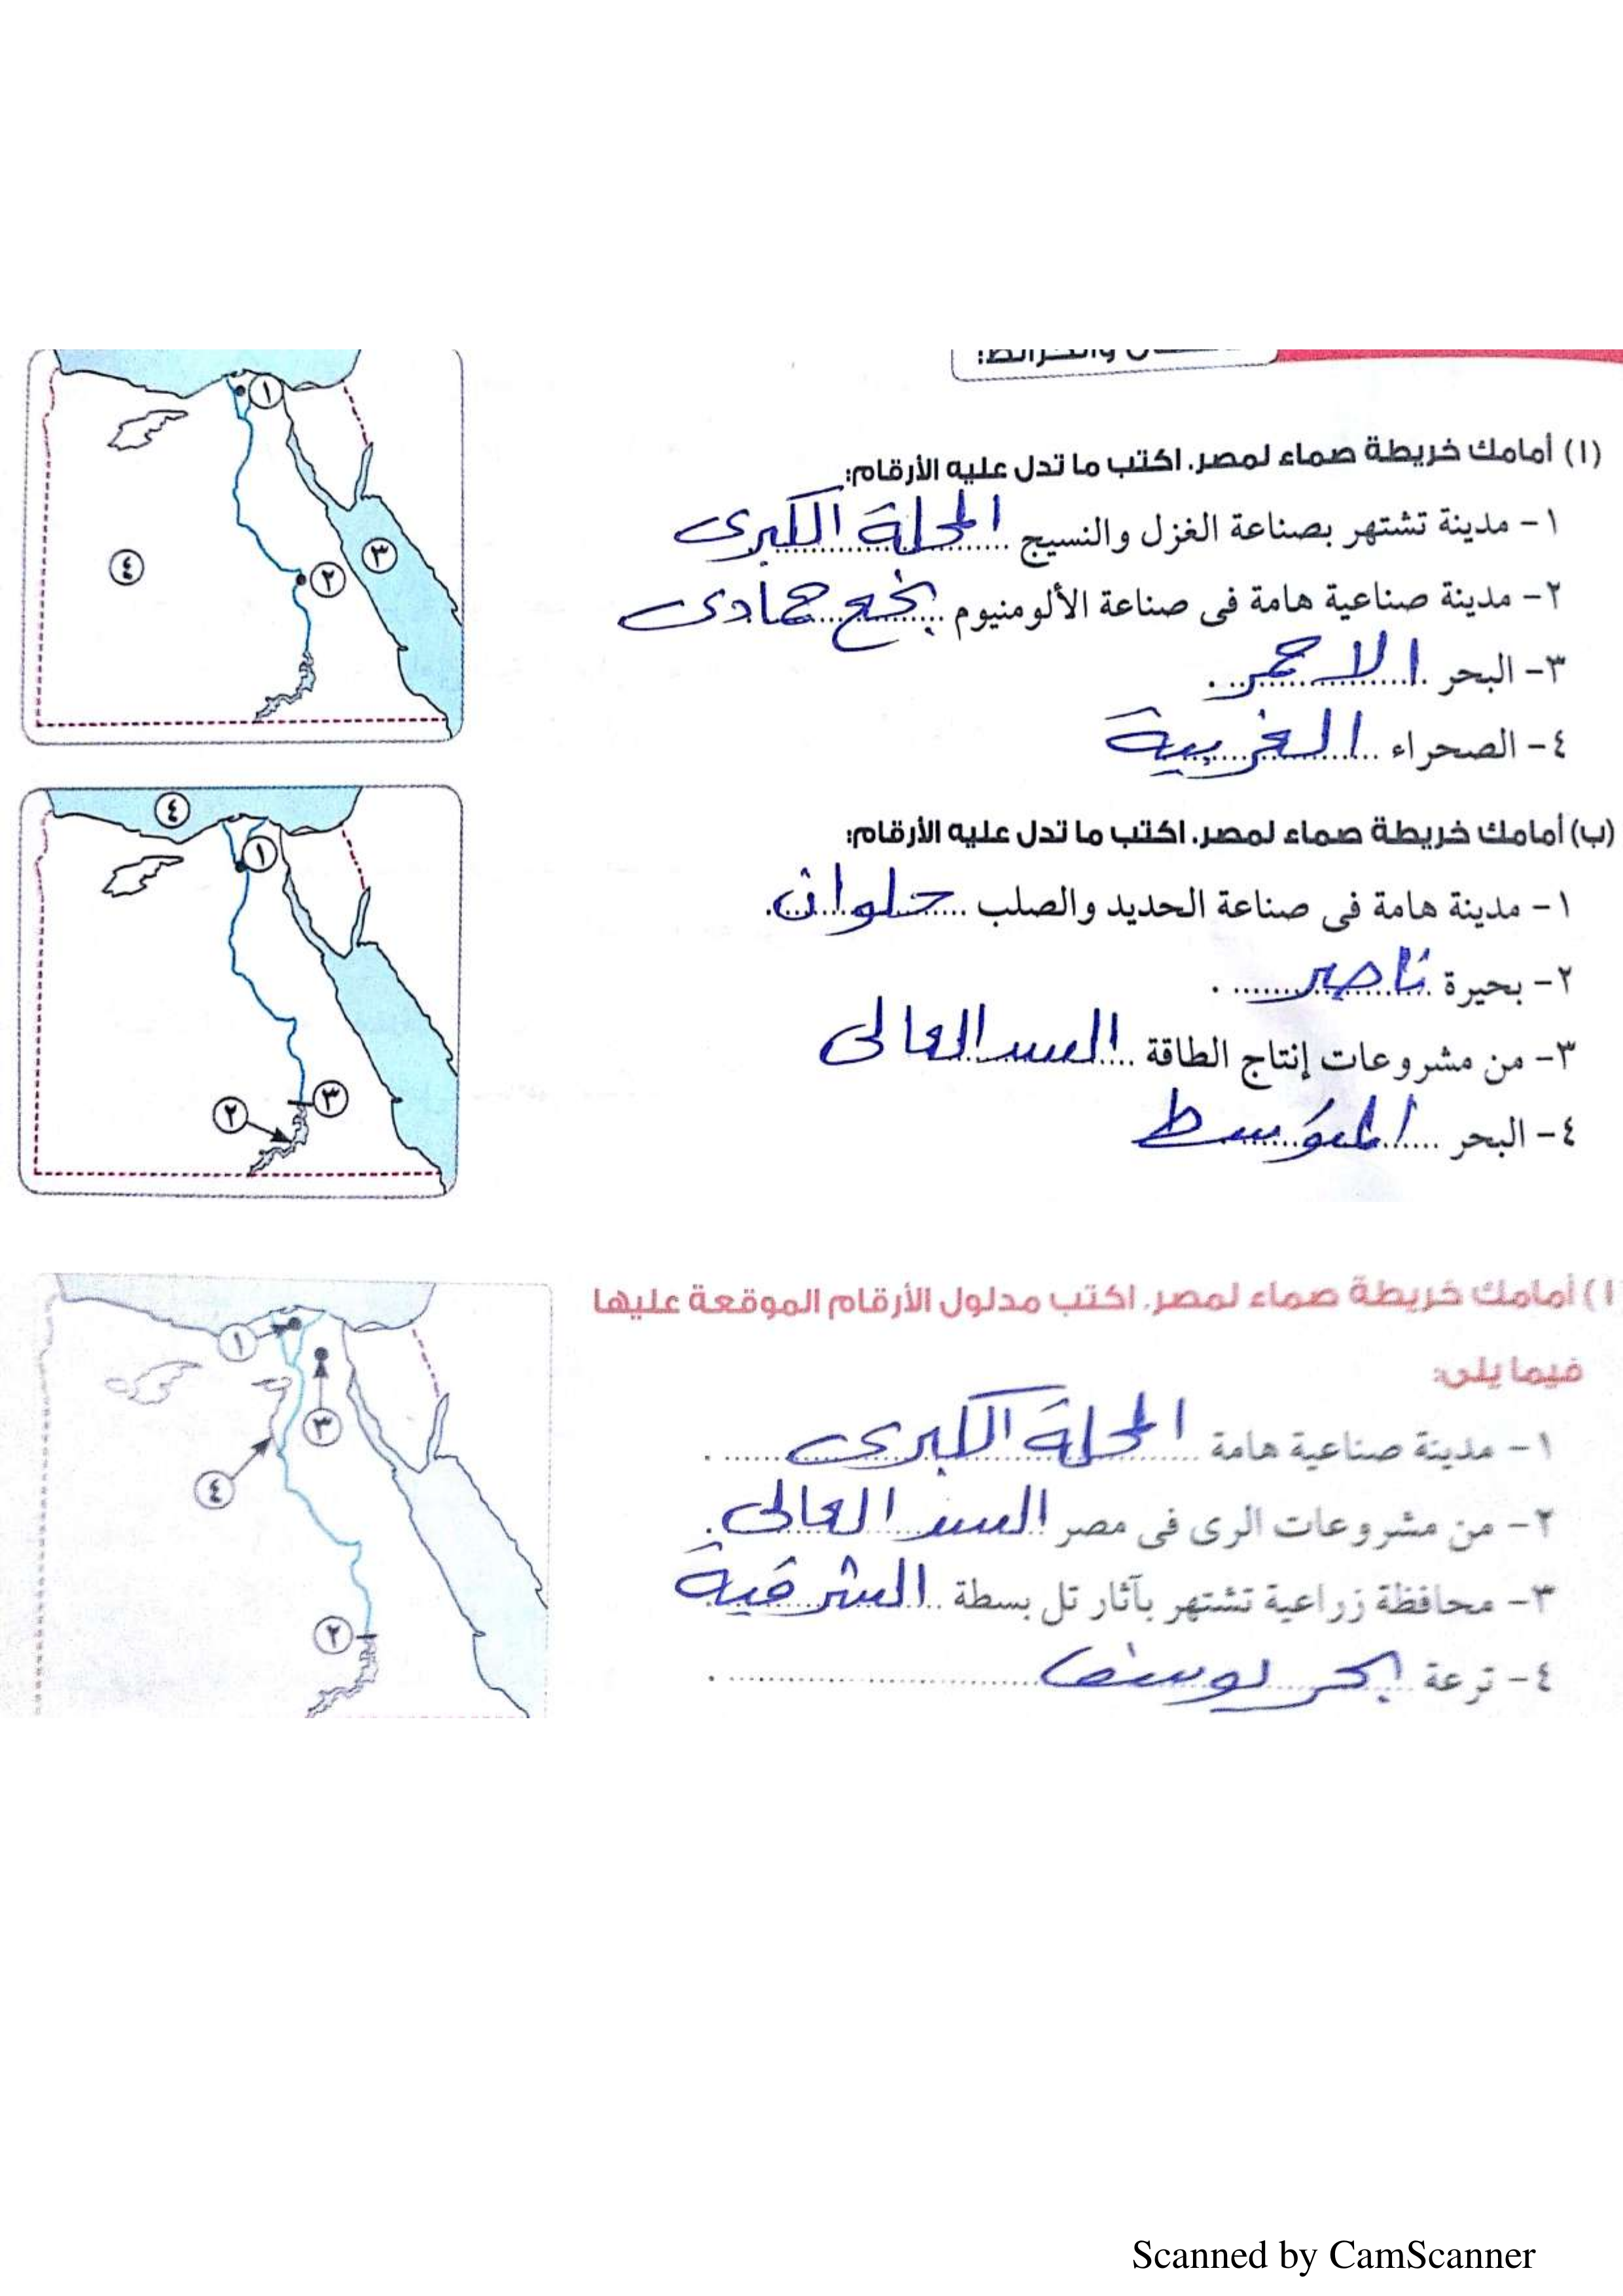 (ا) أمامك خريطة صماء لمصر. اكتب ما تدل عليه الأرقام:
١- مدينة تشتهر بصناعة الغزل والنسيج المحلة الكبرى
٢- مدينة صناعية هامة فى صناعة الألومنيوم نجع حمادى
٣- البحر الاحمر .
٤- الصحراء الغربية
١
٢
٣
٤
(ب) أمامك خريطة صماء لمصر. اكتب ما تدل عليه الأرقام:
١- مدينة هامة فى صناعة الحديد والصلب حلوان.
٢- بحيرة ناصر .
٣- من مشروعات إنتاج الطاقة السد العالى
٤- البحر المتوسط
٤
١
٣
٢
ا) أمامك خريطة صماء لمصر. اكتب مدلول الأرقام الموقعة عليها
فيما يلى:
١- مدينة صناعية هامة المحلة الكبرى .
٢- من مشروعات الرى فى مصر السد العالى.
٣- محافظة زراعية تشتهر بآثار تل بسطة الشرقية
٤- ترعة بحر يوسف .
١
٣
٤
٢
Scanned by CamScanner